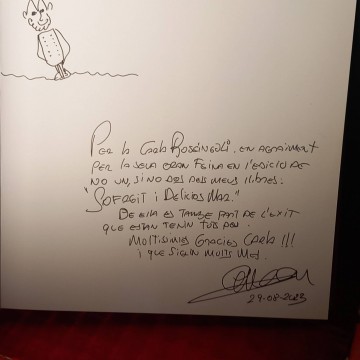 Per la Carla Rossingoli, en agraiment
per la seva gran feina en l'edició de
no un, sino dos dels meus llibres:
"Sofregit i Delicios Mar."
De ella es tambe part de l'exit
que estan tenin tots dos.
Moltisimes Gracies Carla !!!
i que siguin molts mes.
29-08-2023